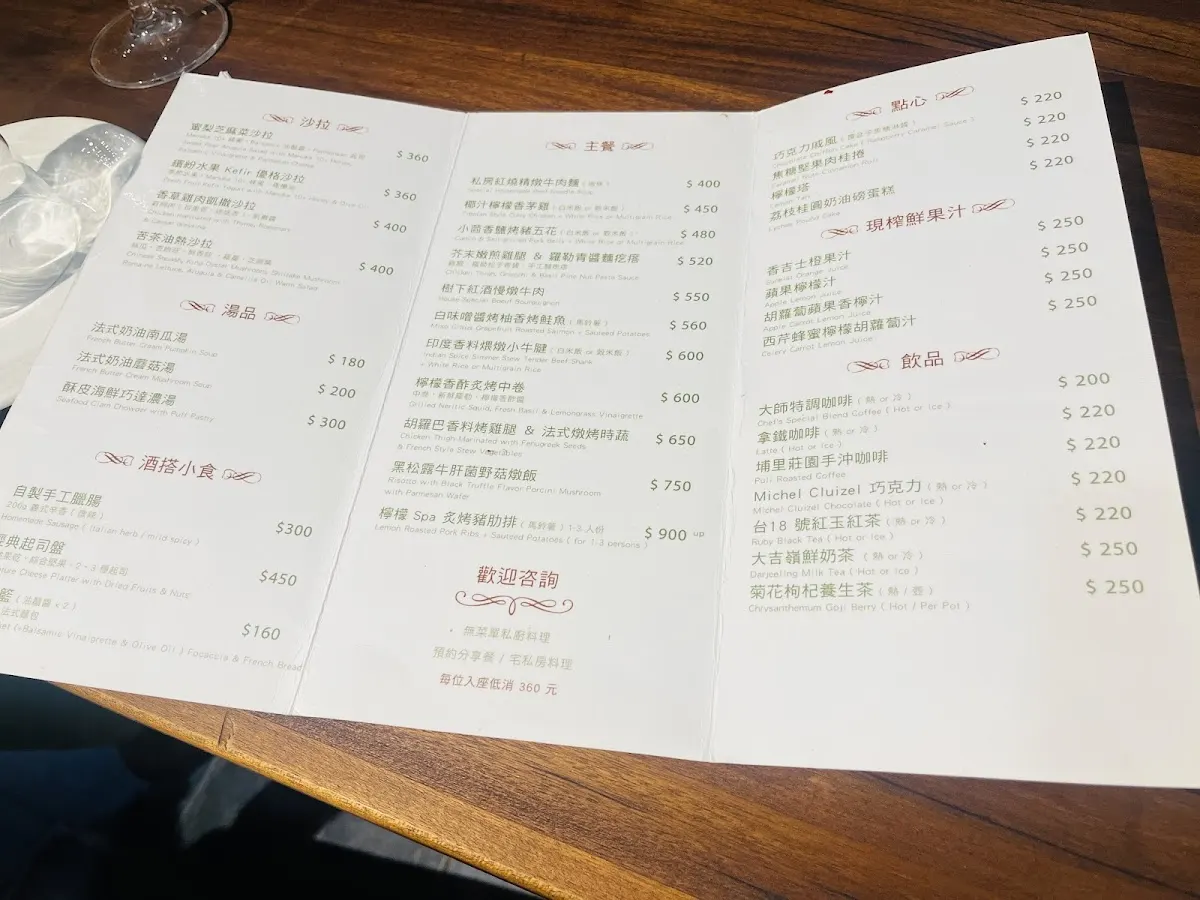 沙拉
蜜梨芝麻菜沙拉
$ 360
繽紛水果 Kefir 優格沙拉
$ 360
香草雞肉凱撒沙拉
$ 400
& Caesar dressing
苦茶油熱沙拉
$ 400
湯品
法式奶油南瓜湯
French Butter Cream Pumpkin Soup
$ 180
法式奶油蘑菇湯
French Butter Cream Mushroom Soup
$ 200
酥皮海鮮巧達濃湯
Seafood Clam Chowder with Puff Pastry
$ 300
酒搭小食
自製手工臘腸
Homemade Sausage ( Italian herb / mild spicy )
$300
經典起司盤
Cheese Platter with Dried Fruits & Nuts
$450
籃
法式麵包
Balsamic Vinaigrette & Olive Oil ) Focaccia & French Bread
$160
主餐
私房紅燒精燉牛肉麵
$ 400
椰汁檸檬香茅雞 ( 白米飯 or 穀米飯 )
$ 450
小茴香鹽烤豬五花 ( 白米飯 or 穀米飯 )
$ 480
芥末嫩煎雞腿 & 羅勒青醬麵疙瘩
$ 520
樹下紅酒慢燉牛肉
House-Special Boeuf Bourguignon
$ 550
白味噌醬烤柚香烤鮭魚 ( 馬鈴薯 )
Miso Citrus Grapefruit Roasted Salmon + Sauteed Potatoes
$ 560
印度香料煨燉小牛腱 ( 白米飯 or 穀米飯 )
Indian Spice Simmer Stew Tender Beef Shank
+ White Rice or Multigrain Rice
$ 600
檸檬香酢炙烤中卷
Grilled Neritic Squid, Fresh Basil & Lemongrass Vinaigrette
$ 600
胡羅巴香料烤雞腿 & 法式燉烤時蔬
Chicken Thigh Marinated with Fenugreek Seeds
& French Style Stew Vegetables
$ 650
黑松露牛肝菌野菇燉飯
Risotto with Black Truffle Flavor Porcini Mushroom
with Parmesan Wafer
$ 750
檸檬 Spa 炙烤豬肋排 ( 馬鈴薯 ) 1-3 人份
Lemon Roasted Pork Ribs + Sauteed Potatoes ( for 1-3 persons )
$ 900 up
歡迎咨詢
・ 無菜單私廚料理
預約分享餐 / 宅私房料理
每位入座低消 360 元
點心
巧克力戚風
$ 220
焦糖堅果肉桂捲
Caramel Nuts Cinnamon Roll
$ 220
檸檬塔
Lemon Tart
$ 220
荔枝桂圓奶油磅蛋糕
Lychee Pound Cake
$ 220
現榨鮮果汁
香吉士橙果汁
Sunkist Orange Juice
$ 250
蘋果檸檬汁
Apple Lemon Juice
$ 250
胡蘿蔔蘋果香檸汁
Apple Carrot Lemon Juice
$ 250
西芹蜂蜜檸檬胡蘿蔔汁
Celery Carrot Lemon Juice
$ 250
飲品
大師特調咖啡 ( 熱 or 冷 )
Chef's Special Blend Coffee ( Hot or Ice )
$ 200
拿鐵咖啡 ( 熱 or 冷 )
Latte ( Hot or Ice )
$ 220
埔里莊園手沖咖啡
Puli Roasted Coffee
$ 220
Michel Cluizel 巧克力 ( 熱 or 冷 )
Michel Cluizel Chocolate ( Hot or Ice )
$ 220
台18 號紅玉紅茶 ( 熱 or 冷 )
Ruby Black Tea ( Hot or Ice )
$ 220
大吉嶺鮮奶茶 ( 熱 or 冷 )
Darjeeling Milk Tea ( Hot or Ice )
$ 250
菊花枸杞養生茶 ( 熱 / 壺 )
Chrysanthemum Goji Berry ( Hot / Per Pot )
$ 250